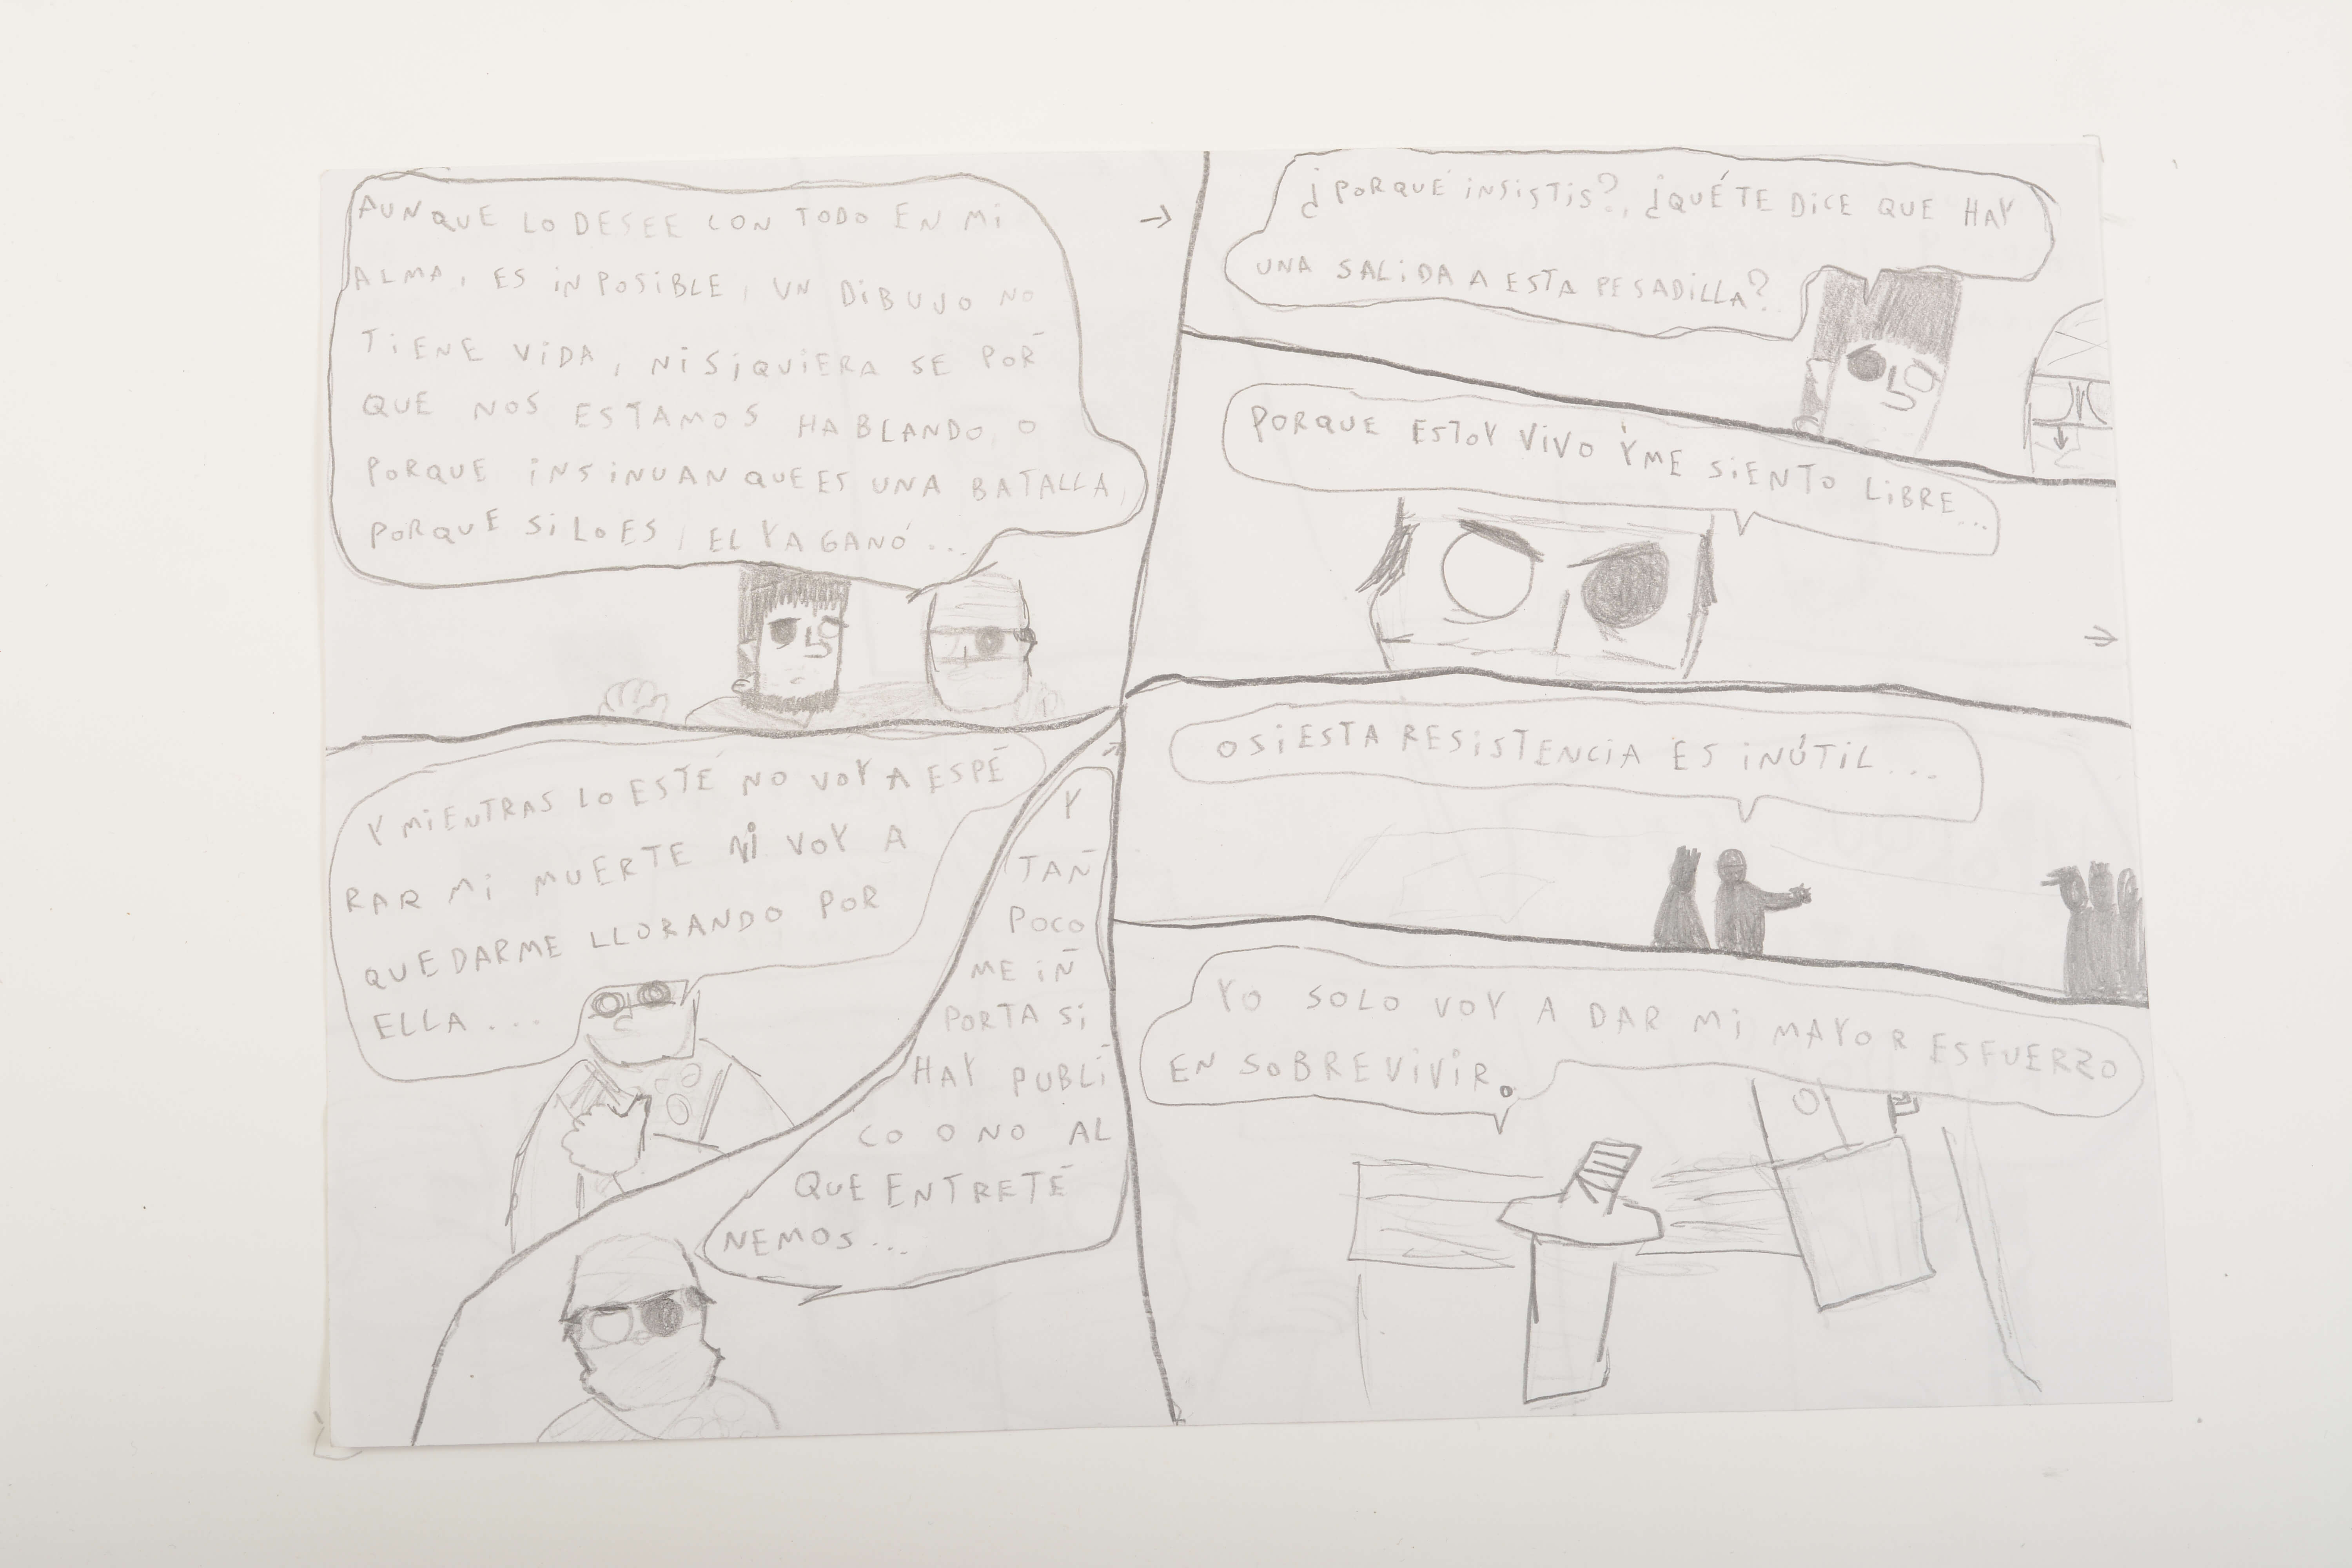 AUNQUE LO DESEE CON TODO EN MI
ALMA, ES INPOSIBLE, UN DIBUJO NO
TIENE VIDA, NI SIQUIERA SE POR-
QUE NOS ESTAMOS HABLANDO, O
PORQUE INSINUAN QUE ES UNA BATALLA,
PORQUE SI LO ES, EL YA GANÓ...
→
¿PORQUÉ INSISTIS?, ¿QUÉ TE DICE QUE HAY
UNA SALIDA A ESTA PESADILLA?
↓
PORQUE ESTOY VIVO Y ME SIENTO LIBRE...
→
Y MIENTRAS LO ESTÉ NO VOY A ESPE-
RAR MI MUERTE NI VOY A
QUEDARME LLORANDO POR
ELLA...
Y
TAN-
POCO
ME IN-
PORTA SI
HAY PUBLI-
CO O NO AL
QUE ENTRETE-
NEMOS...
↗
O SI ESTA RESISTENCIA ES INÚTIL...
YO SOLO VOY A DAR MI MAYOR ESFUERZO
EN SOBREVIVIR.